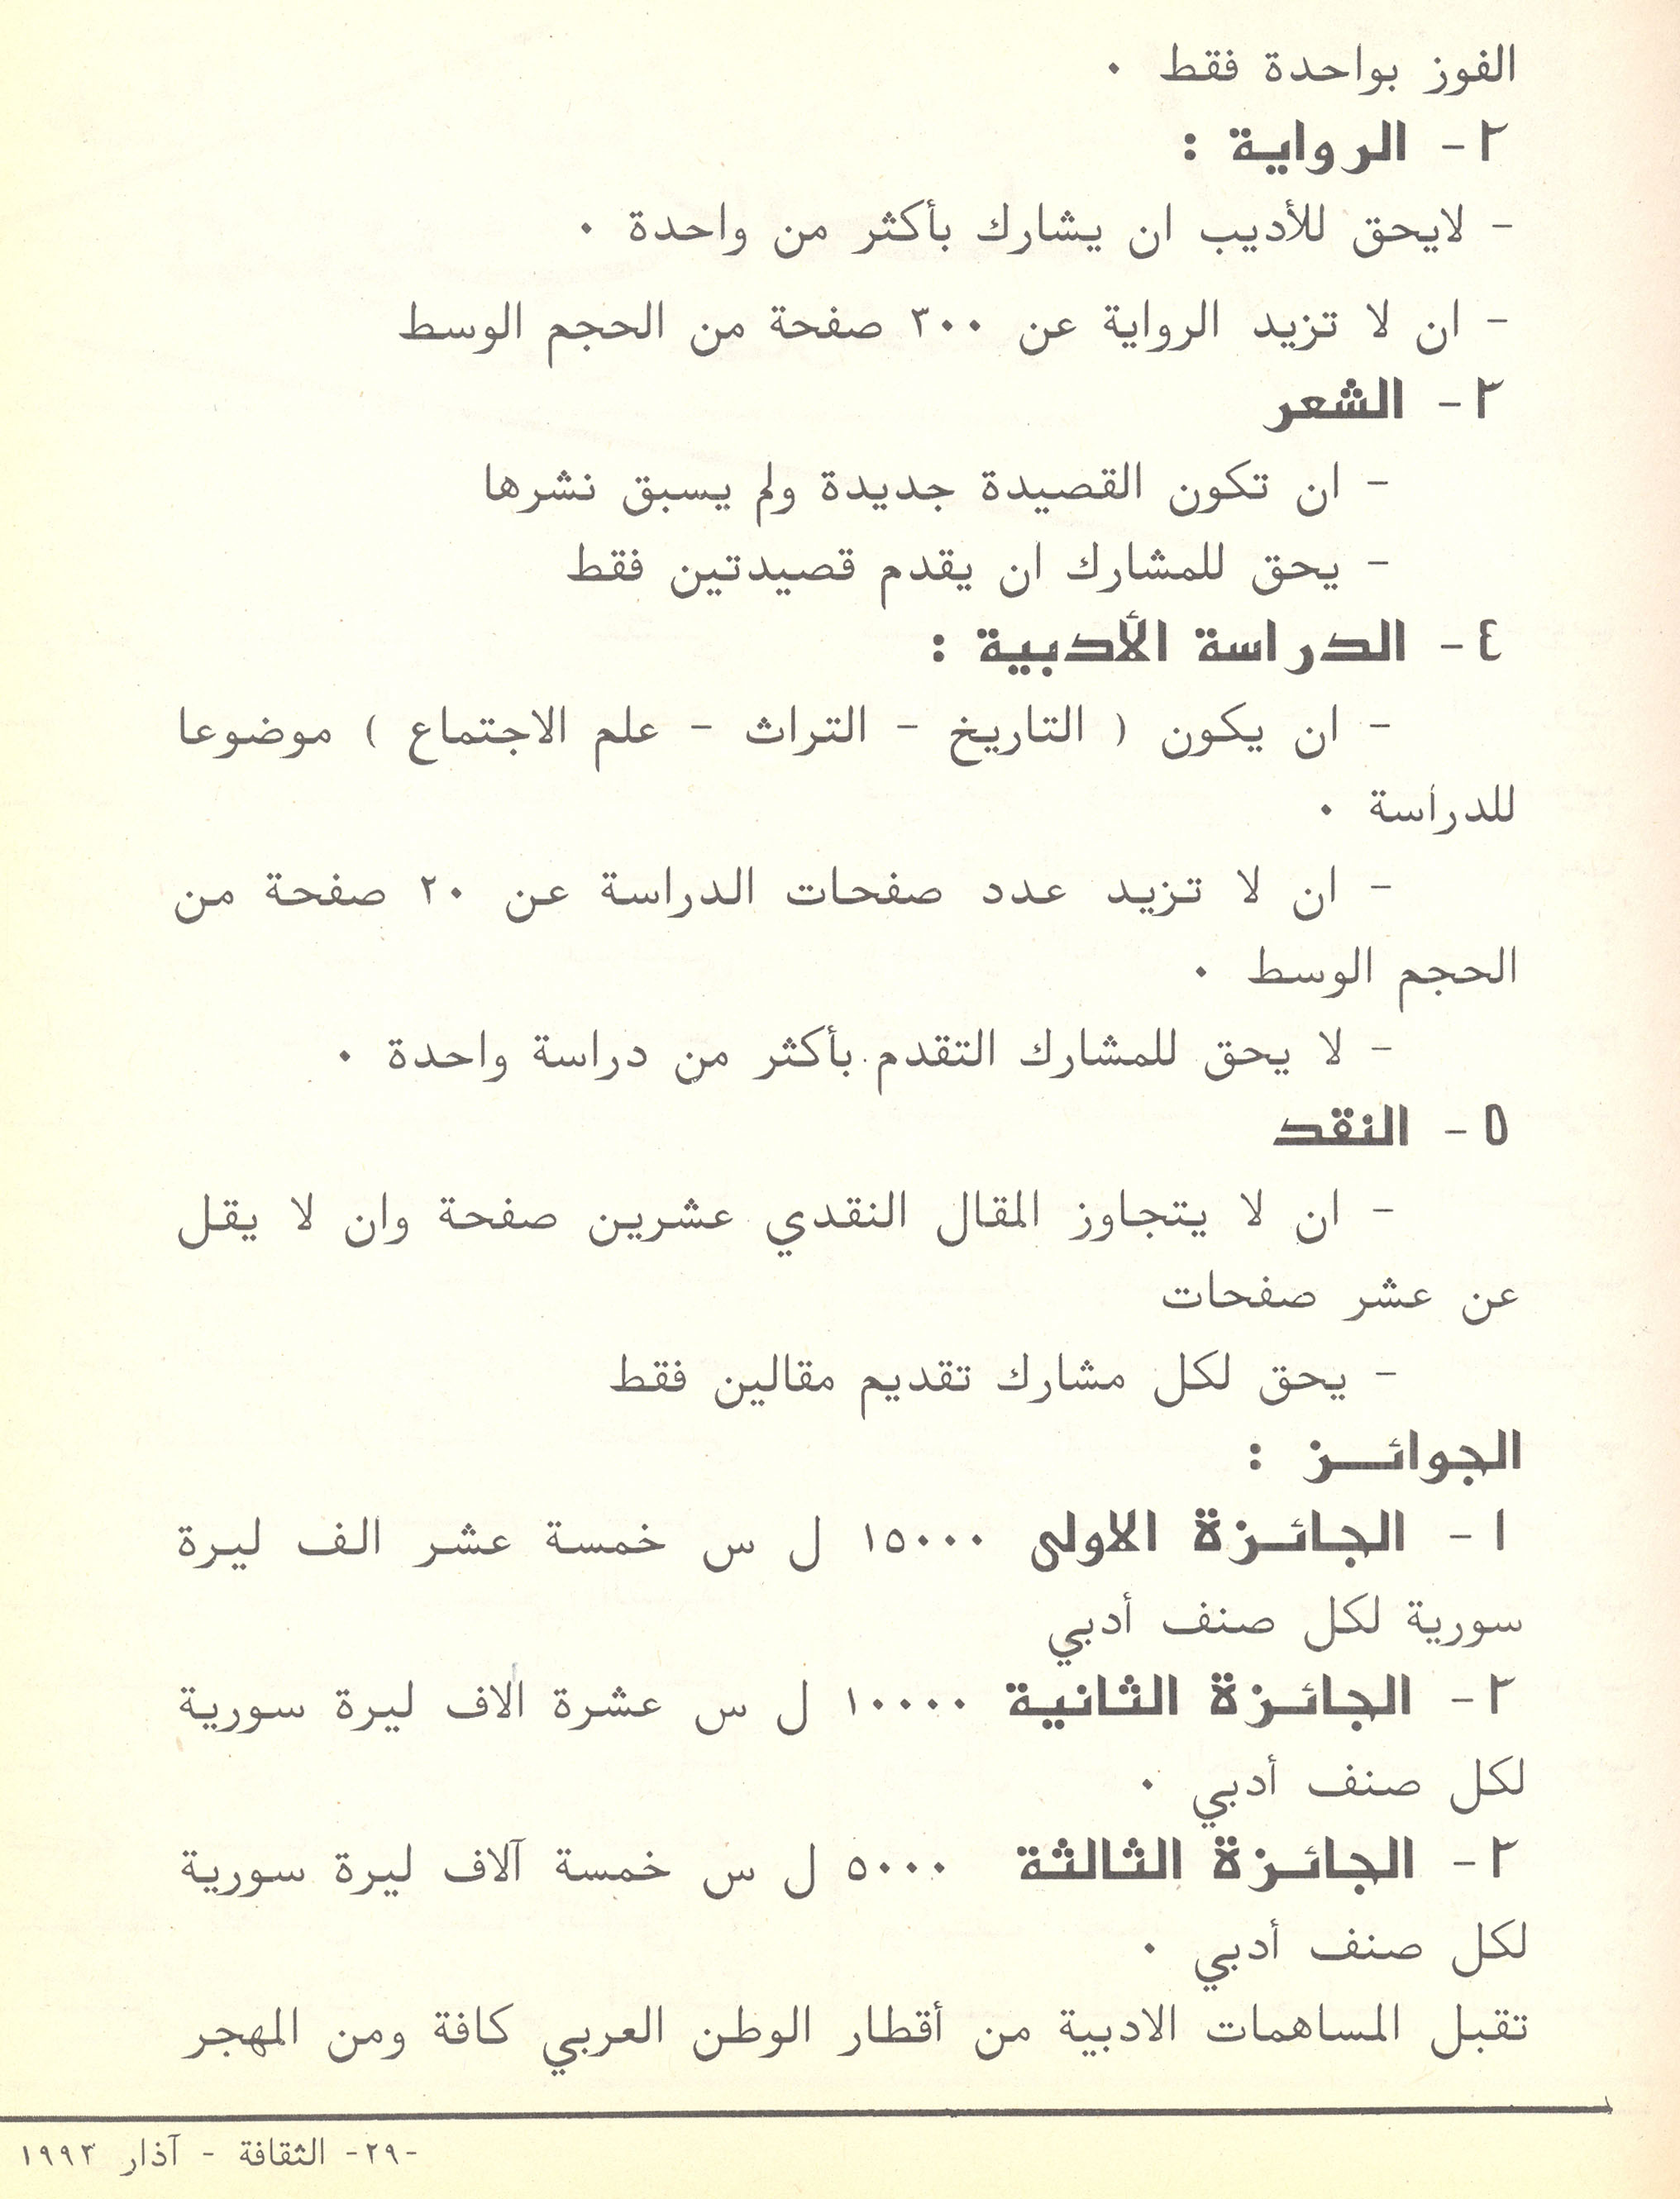 الفوز بواحدة فقط ٠
٢ - الرواية :
- لايحق للأديب ان يشارك بأكثر من واحدة ٠
- ان لا تزيد الرواية عن ٣٠٠ صفحة من الحجم الوسط
٣ - الشعر
- ان تكون القصيدة جديدة ولم يسبق نشرها
- يحق للمشارك ان يقدم قصيدتين فقط
٤ - الدراسة الأدبية :
- ان يكون ( التاريخ - التراث - علم الاجتماع ) موضوعا
للدراسة ٠
- ان لا تزيد عدد صفحات الدراسة عن ٢٠ صفحة من
الحجم الوسط ٠
- لا يحق للمشارك التقدم بأكثر من دراسة واحدة ٠
٥ - النقد
- ان لا يتجاوز المقال النقدي عشرين صفحة وان لا يقل
عن عشر صفحات
- يحق لكل مشارك تقديم مقالين فقط
الجوائـــز :
١ - الجائــزة الاولى ١٥٠٠٠ ل س خمسة عشر الف ليرة
سورية لكل صنف أدبي
٢ - الجائــزة الثانية ١٠٠٠٠ ل س عشرة الاف ليرة سورية
لكل صنف أدبي ٠
٣ - الجائــزة الثالثة ٥٠٠٠ ل س خمسة آلاف ليرة سورية
لكل صنف أدبي ٠
تقبل المساهمات الادبية من أقطار الوطن العربي كافة ومن المهجر
-٢٩- الثقافة - آذار ١٩٩٣